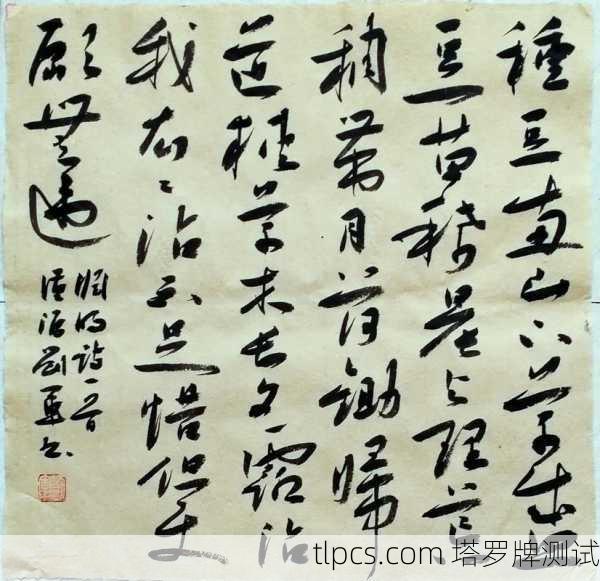 種豆南山下草盛
豆苗稀晨興理荒
穢帶月荷鋤歸
道狹草木長夕露沾
我衣々沾不足惜但使
願無違
淵明詩一首
劉
書
tlpcs.com 塔罗牌测试